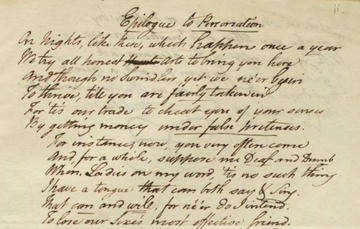 Epilogue to Personation
On Nights, like these, which happen once a year
We try all honest arts to bring you here
And though no Swindlers, yet we ne'er begin
To thrive, till you are fairly taken in
For 'tis our trade to cheat you of your senses
By getting money under false pretenses.
For instance, now, you very often come
And, for a while, suppose me Deaf and Dumb
When, Ladies on my word 'tis no such thing
I have a tongue that can both say & Sing.
That can and will, for ne'er do I intend
To lose our Sexes most effective friend.